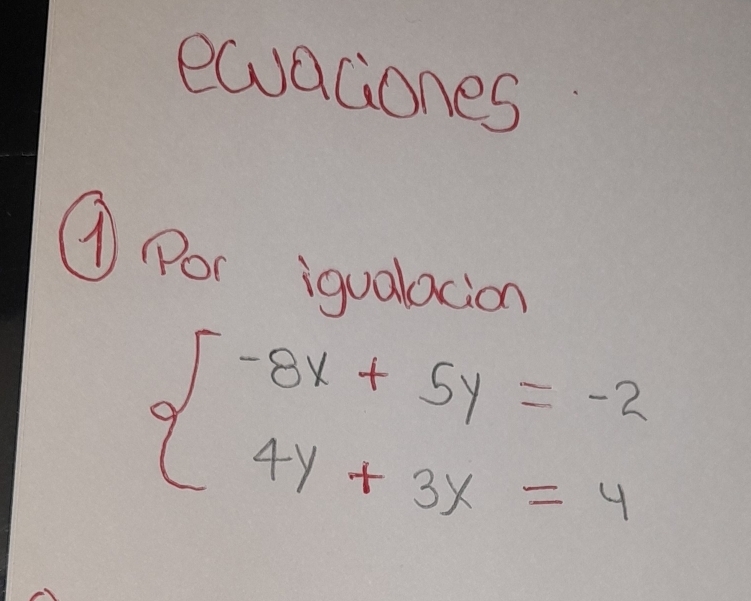 ecuaciones
① Por igualacion
-8x + 5y = -2
4y + 3x = 4